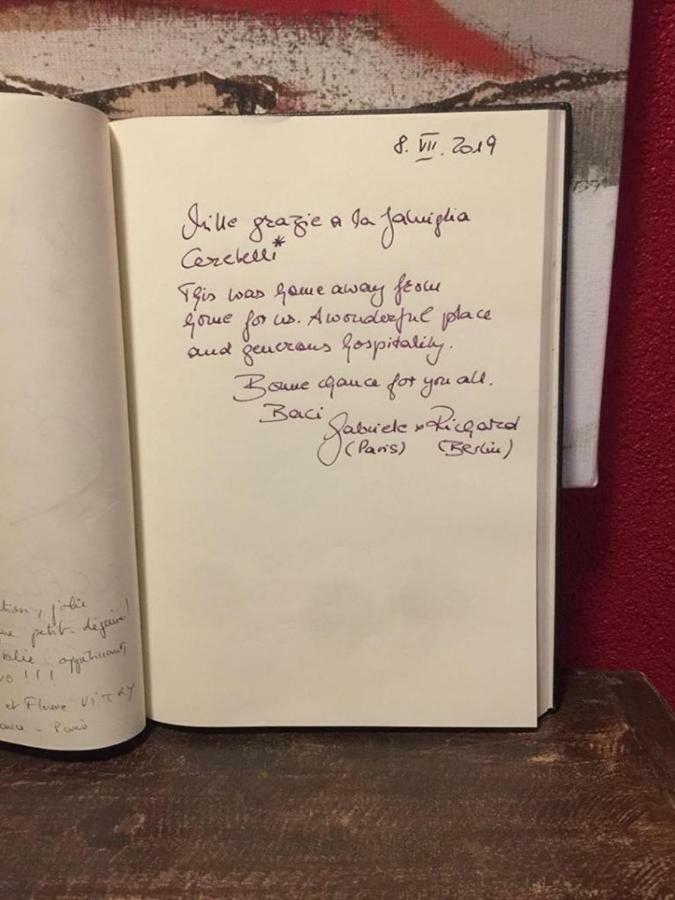 8. VII. 2019
Mille grazie a la famiglia
Cerebelli*
This was home away from
home for us. A wonderful place
and generous hospitality.
Bonne chance for you all.
Baci
Gabriele & Richard
(Paris) (Berlin)
tion, jolie
petit-déjeuner
!!!
et Florence VITRY
Paris